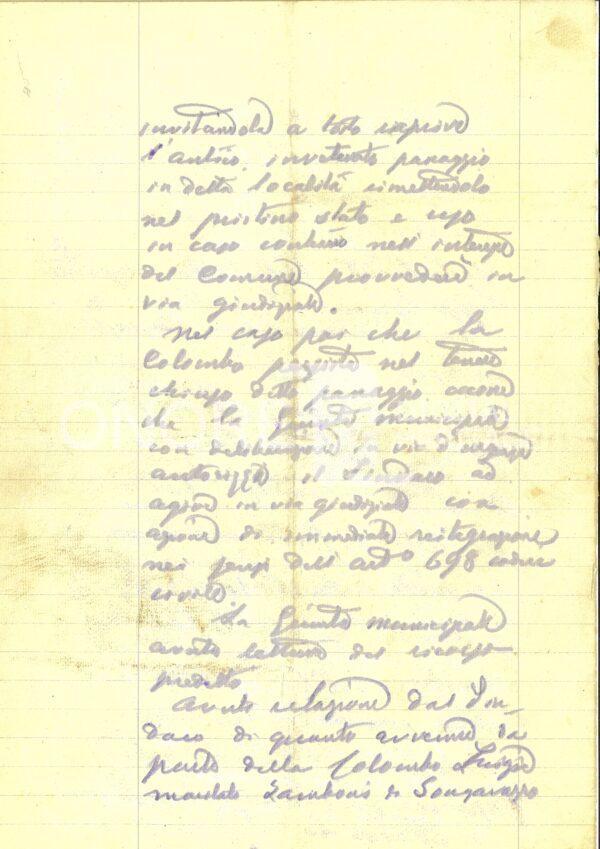 invitandola a tosto riaprire
l'antico, inveterato passaggio
in detta località rimettendolo
nel pristino stato e uso
in caso contrario nell'interesse
del Comune provvederà in
via giudiziale.
Nel caso poi che la
Colombo persista nel tenere
chiuso detto passaggio occorre
che la Giunta municipale
con deliberazione in via d'urgenza
autorizzi il Sindaco ad
agire in via giudiziale con
azione di immediata reintegrazione
nei sensi dell'arto 698 codice
civile.
La Giunta municipale
avuta lettura del ricorso
predetto
Avuta relazione dal Sin-
daco di quanto avvenne da
parte della Colombo Luigia
maritata Zamboni di